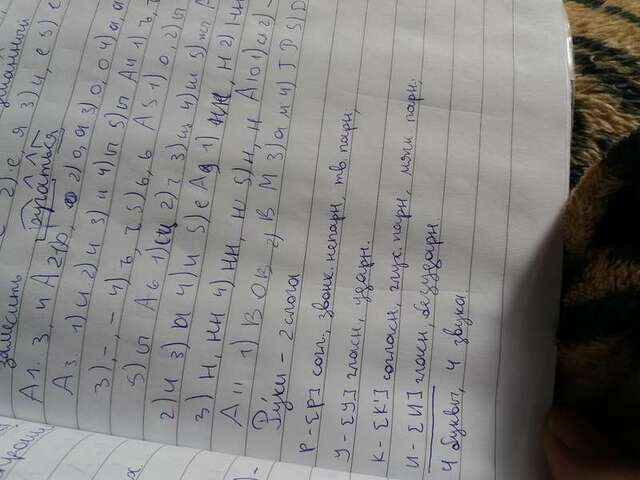 замесить 2) е, я 3) и, е 5) е
А1. 3, и А2 1) о, 2) о, а 3) о, о 4) а, а
ругаться
А3. 1) и 2) и 3) и 4) ы 5) ы А4 1) ъ, ъ
3) -, - 4) ъ, ъ 5) ь, ь А5 1) о, 2) ы
5) ы А6 1) щ 2) ч 3) щ 4) ш 5) жч А
2) и 3) ы 4) и 5) е 1) нн, н 2) нн
3) н, нн 4) нн, н 5) н, н А10 1) и 2) -
А11 1) В О В 2) В М 3) а м 4) Г Р 5) D
Ру́ки - 2 слога
Р - [Р] согл., звонк. непарн, тв. парн,
У - [У] гласн, ударн.
К - [К'] согласн, глух. парн, мягк. парн;
И - [И] гласн, безударн.
4 буквы, 4 звука.